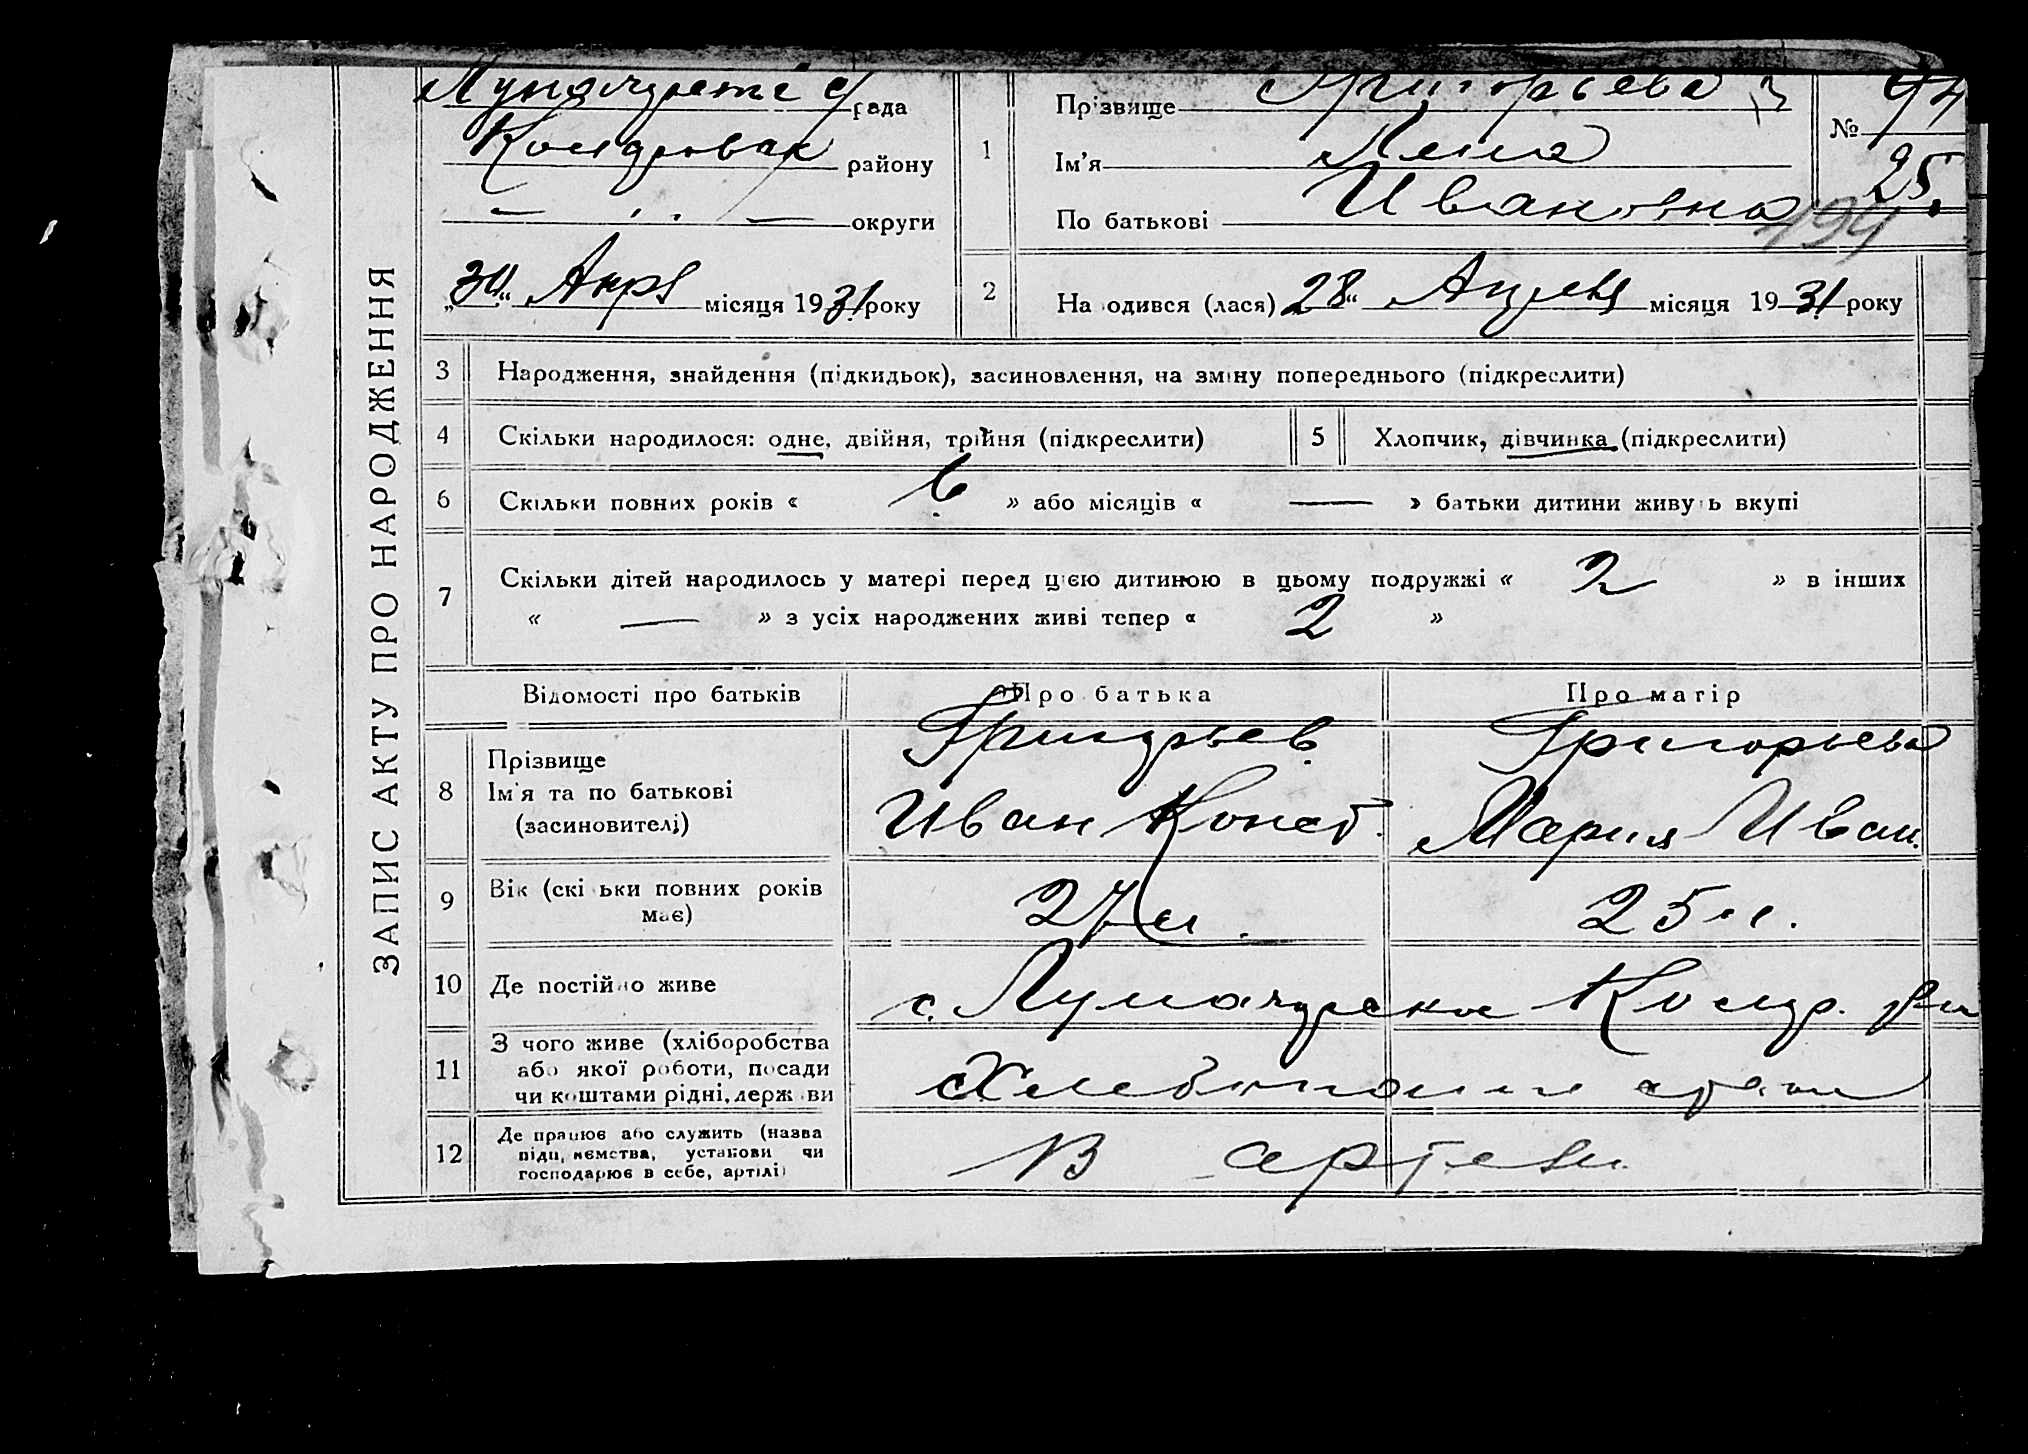 ЗАПИС АКТУ ПРО НАРОДЖЕННЯ
рада
району
— . . — округи
„30“ Апр місяця 1931 року
1
Прізвище Григорьева
Ім'я Лена
По батькові Ивановна
№ 94
25.
194
2
Народився (лася) 28“ Апреля місяця 1931 року
3 Народження, знайдення (підкидьок), засиновлення, на зміну попереднього (підкреслити)
4 Скільки народилося: одне, двійня, трійня (підкреслити)
5 Хлопчик, дівчинка (підкреслити)
6 Скільки повних років « 6 » або місяців « — » батьки дитини живуть вкупі
7 Скільки дітей народилось у матері перед цією дитиною в цьому подружжі « 2 » в інших
« — » з усіх народжених живі тепер « 2 »
Відомості про батьків Про батька Про матір
8 Прізвище
Ім'я та по батькові
(засиновителі)
Григорьев Григорьева
Иван Конст. Мария Иван.
9 Вік (скільки повних років
має)
27 л. 25 л.
10 Де постійно живе
с.
11 З чого живе (хліборобства
або якої роботи, посади
чи коштами рідні, держави
12 Де працює або служить (назва
підприємства, установи чи
господарює в себе, артілі)
В артели